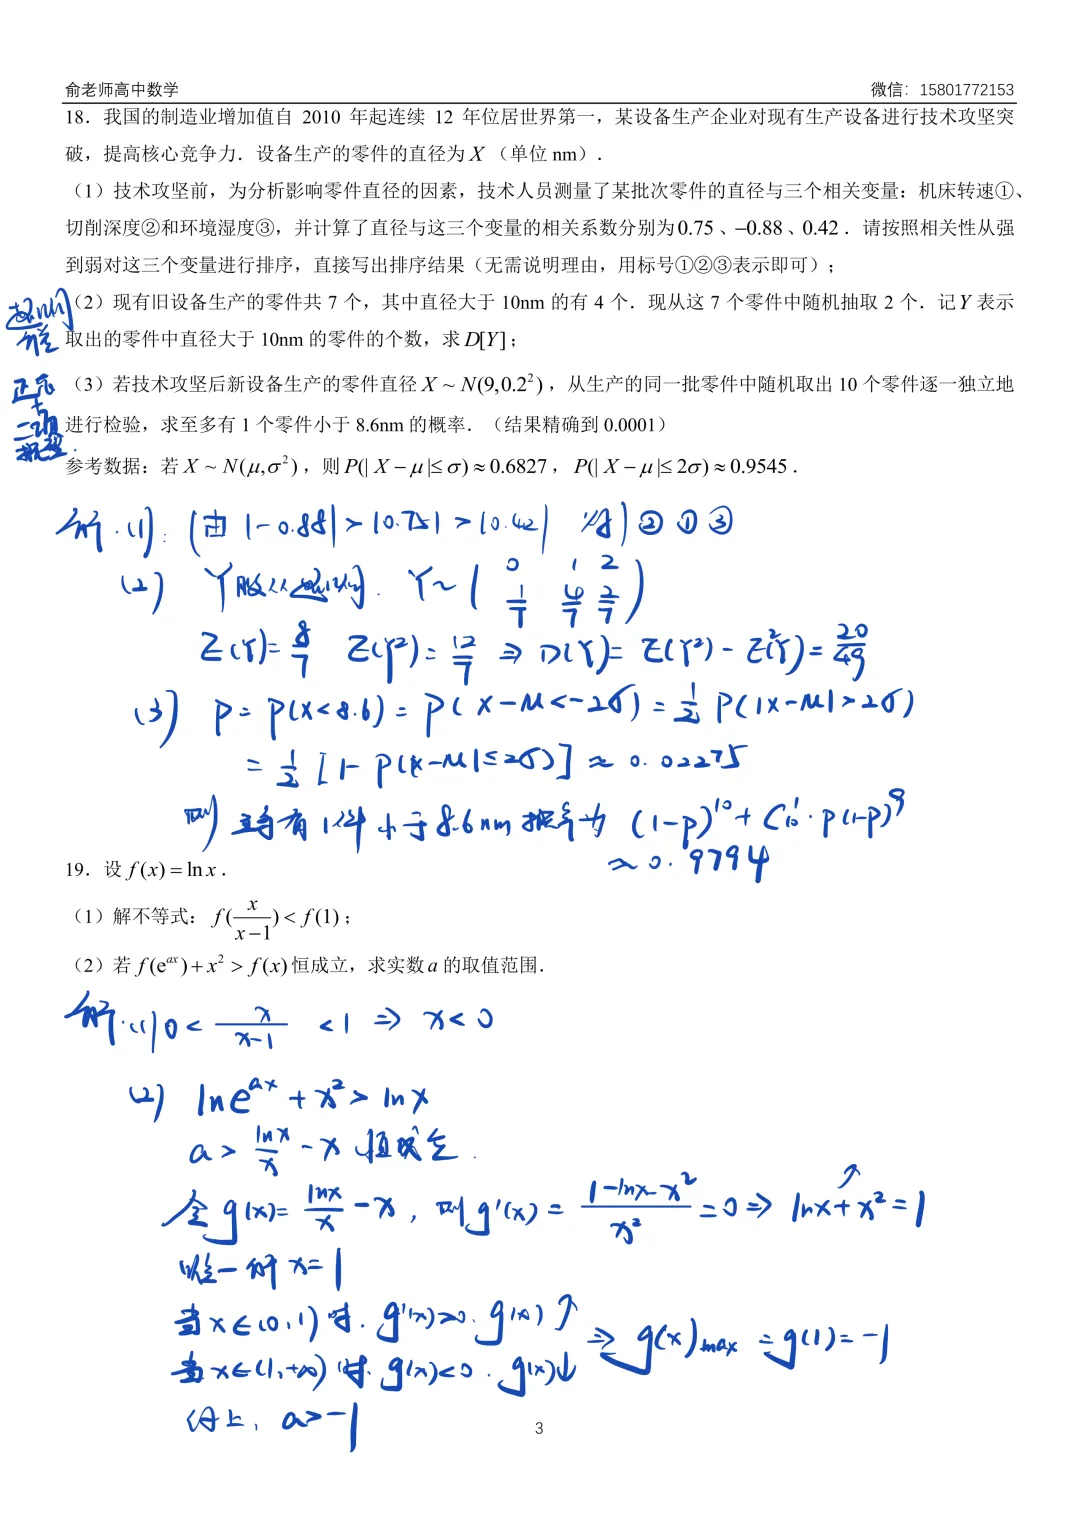 俞老师高中数学 微信：15801772153
18．我国的制造业增加值自 2010 年起连续 12 年位居世界第一，某设备生产企业对现有生产设备进行技术攻坚突
破，提高核心竞争力．设备生产的零件的直径为 X （单位 nm）．
（1）技术攻坚前，为分析影响零件直径的因素，技术人员测量了某批次零件的直径与三个相关变量：机床转速①、
切削深度②和环境湿度③，并计算了直径与这三个变量的相关系数分别为0.75、−0.88、0.42．请按照相关性从强
到弱对这三个变量进行排序，直接写出排序结果（无需说明理由，用标号①②③表示即可）；
（2）现有旧设备生产的零件共 7 个，其中直径大于 10nm 的有 4 个．现从这 7 个零件中随机抽取 2 个．记 Y 表示
取出的零件中直径大于 10nm 的零件的个数，求 D[Y]；
超几何
方差
（3）若技术攻坚后新设备生产的零件直径 X ~ N(9,0.2²)，从生产的同一批零件中随机取出 10 个零件逐一独立地
进行检验，求至多有 1 个零件小于 8.6nm 的概率．（结果精确到 0.0001）
正态
+
二项
概型.
参考数据：若 X ~ N(μ,σ²)，则 P(| X − μ |≤ σ) ≈ 0.6827，P(| X − μ |≤ 2σ) ≈ 0.9545．
解.(1): (由 |-0.88|>|0.75|>|0.42| 故) ② ① ③
(2) Y服从超几何. Y~( 0 1 2 ; 1/7 4/7 2/7 )
E(Y)=8/7 E(Y²)=12/7 ⇒ D(Y)= E(Y²)-E²(Y)=20/49
(3) P= P(X<8.6)= P( X-μ<-2σ)=1/2 P(|X-μ|>2σ)
=1/2 [1- P(|X-μ|≤2σ)] ≈ 0.02275
则 至多有1件小于8.6nm概率为 (1-P)¹⁰+ C₁₀¹·P(1-P)⁹
≈0.9794
19．设 f(x) = ln x．
（1）解不等式：f(x/(x−1)) < f(1)；
（2）若 f(e^{ax}) + x² > f(x)恒成立，求实数 a 的取值范围．
解.(1) 0< x/(x-1) <1 ⇒ x<0
(2) ln e^{ax} + x² > ln x
a > lnx/x - x 恒成立.
令 g(x)= lnx/x - x, 则g'(x)= (1-lnx-x²)/x² =0 ⇒ lnx+x²=1 ↗
唯一解 x=1
当x∈(0,1)时. g'(x)>0. g(x)↑
当x∈(1,+∞)时. g'(x)<0. g(x)↓ ⇒ g(x)max =g(1)=-1
综上, a>-1
3